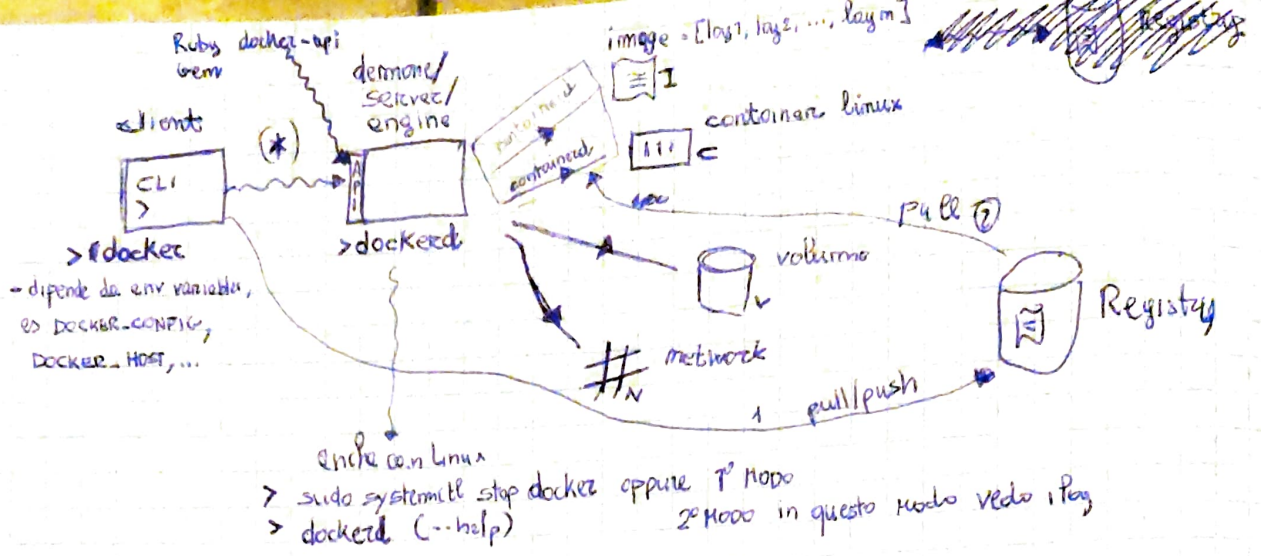 Ruby docker-api
Gem
image = [lay1, lay2, ..., laym]
Registry
demone/
server/
engine
I
client
(*)
container linux
containerd
containerd
C
CLI
>
API
Pull 2
> docker
> dockerd
volume
V
- dipende da env variables,
es DOCKER_CONFIG,
DOCKER_HOST, ...
Registry
network
N
1 pull/push
anche con Linux
> sudo systemctl stop docker oppure 1° MODO
> dockerd (--help)
2° MODO in questo modo vedo i log